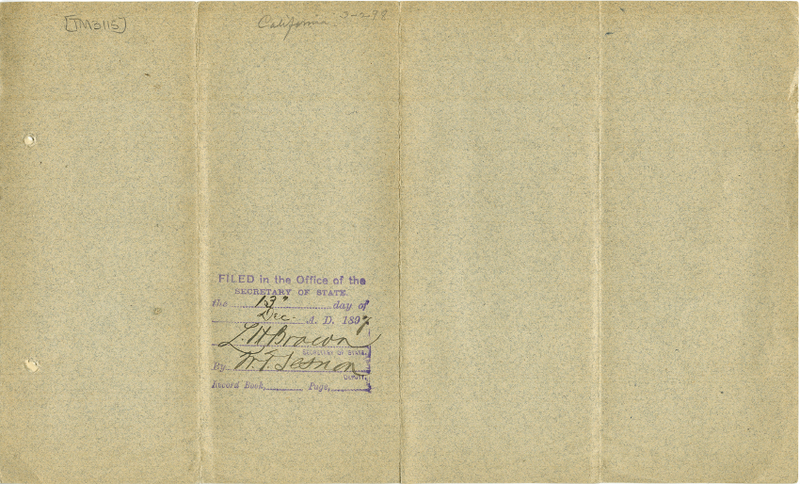 [TM3115]
California 3-2-98
FILED in the Office of the
SECRETARY OF STATE.
the 13" day of
Dec. A. D. 1897
L. H. Brown
SECRETARY OF STATE.
By W. T.
DEPUTY.
Record Book, Page,